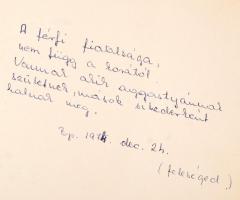 A férfi fiatalsága,
nem függ a korától.
Vannak akik aggastyánnak
születnek, mások suhederként
halnak meg.
Bp. 1974. dec. 24.
(feleséged.)